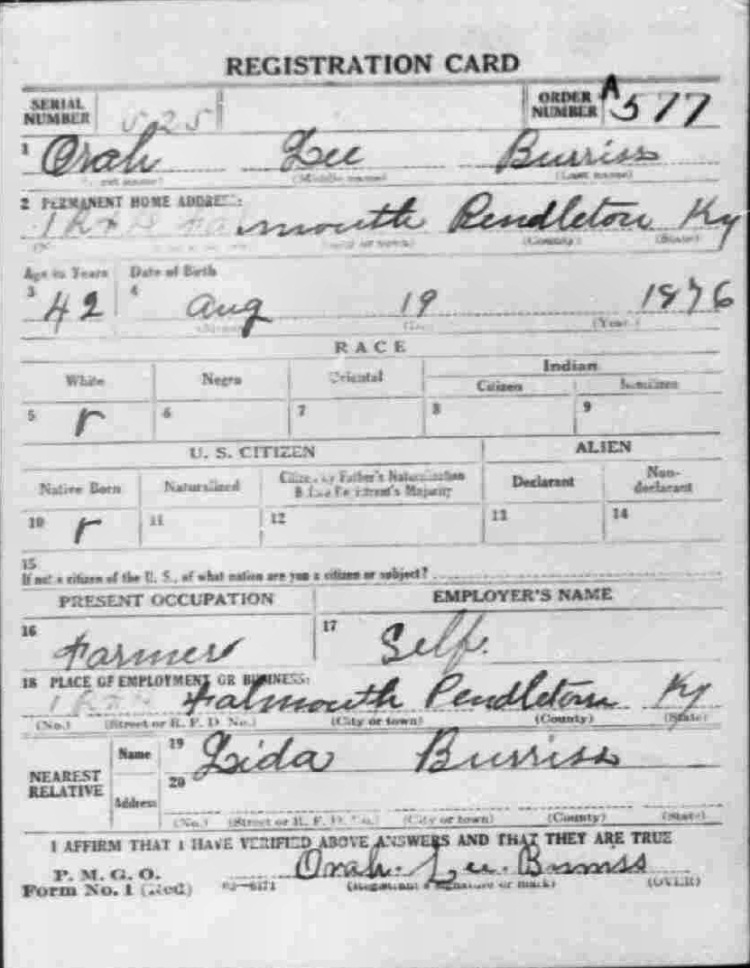 REGISTRATION CARD
SERIAL NUMBER 525 ORDER NUMBER A577
1 Orah Lee Burriss
(Middle name) (Last name)
2 PERMANENT HOME ADDRESS:
Falmouth Pendleton Ky
(County) (State)
Age in Years Date of Birth
3 42 4 Aug 19 1876
(Year)
RACE
White Negro Oriental Indian
Citizen
5 r 6 7 8 9
U. S. CITIZEN ALIEN
Native Born Naturalized Citizen by Father's Naturalization Before Registrant's Majority Declarant Non-declarant
10 r 11 12 13 14
15
If not a citizen of the U. S., of what nation are you a citizen or subject?
PRESENT OCCUPATION EMPLOYER'S NAME
16 Farmer 17 Self.
18 PLACE OF EMPLOYMENT OR BUSINESS:
Falmouth Pendleton Ky
(No.) (Street or R. F. D. No.) (City or town) (County) (State)
NEAREST RELATIVE Name 19 Lida Burriss
Address 20
(No.) (Street or R. F. D. No.) (City or town) (County) (State)
I AFFIRM THAT I HAVE VERIFIED ABOVE ANSWERS AND THAT THEY ARE TRUE
P. M. G. O.
Form No. 1 (Red) 03—6171 Orah. Lee. Burriss
(Registrant's signature or mark) (OVER)